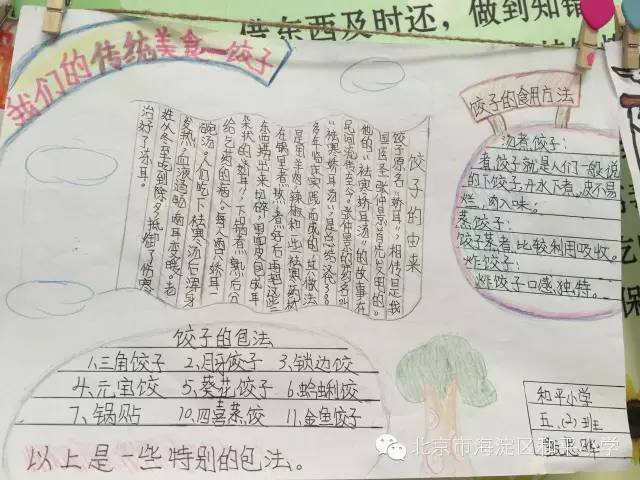 借东西及时还，做到知错
我们的传统美食—饺子
饺子的由来
饺子原名"娇耳"，相传是我
国医圣张仲景首先发明的。
他的"祛寒娇耳汤"的故事在
民间流传至今。张仲景的药名叫
"祛寒娇耳汤"，是总结汉代300
多年临床实践而成的，其做法
是用羊肉、辣椒和一些祛寒药材
在锅里煮熬，煮好后再把这些
东西捞出来切碎，用面皮包成耳
朵状的"娇耳"，下锅煮熟后分
给乞药的病人。每人两只娇耳一
碗汤。人们吃下祛寒汤后浑身
发热，血液通畅，两耳变暖。老
姓从冬至吃到除夕，抵御了伤寒
治好了冻耳。
饺子的食用方法
汤煮饺子：
煮饺子就是人们一般说
的下饺子，开水下煮，皮不易
烂，肉入味。
蒸饺子：
饺子蒸者，比较利用吸收。
炸饺子：
炸饺子口感独特。
饺子的包法
1、三角饺子 2、月牙饺子 3、锁边饺
4、元宝饺 5、葵花饺子 6、蛤蜊饺
7、锅贴 10、四喜蒸饺 11、金鱼饺子
以上是一些特别的包法。
和平小学
五、(2)班
北京市海淀区和平小学